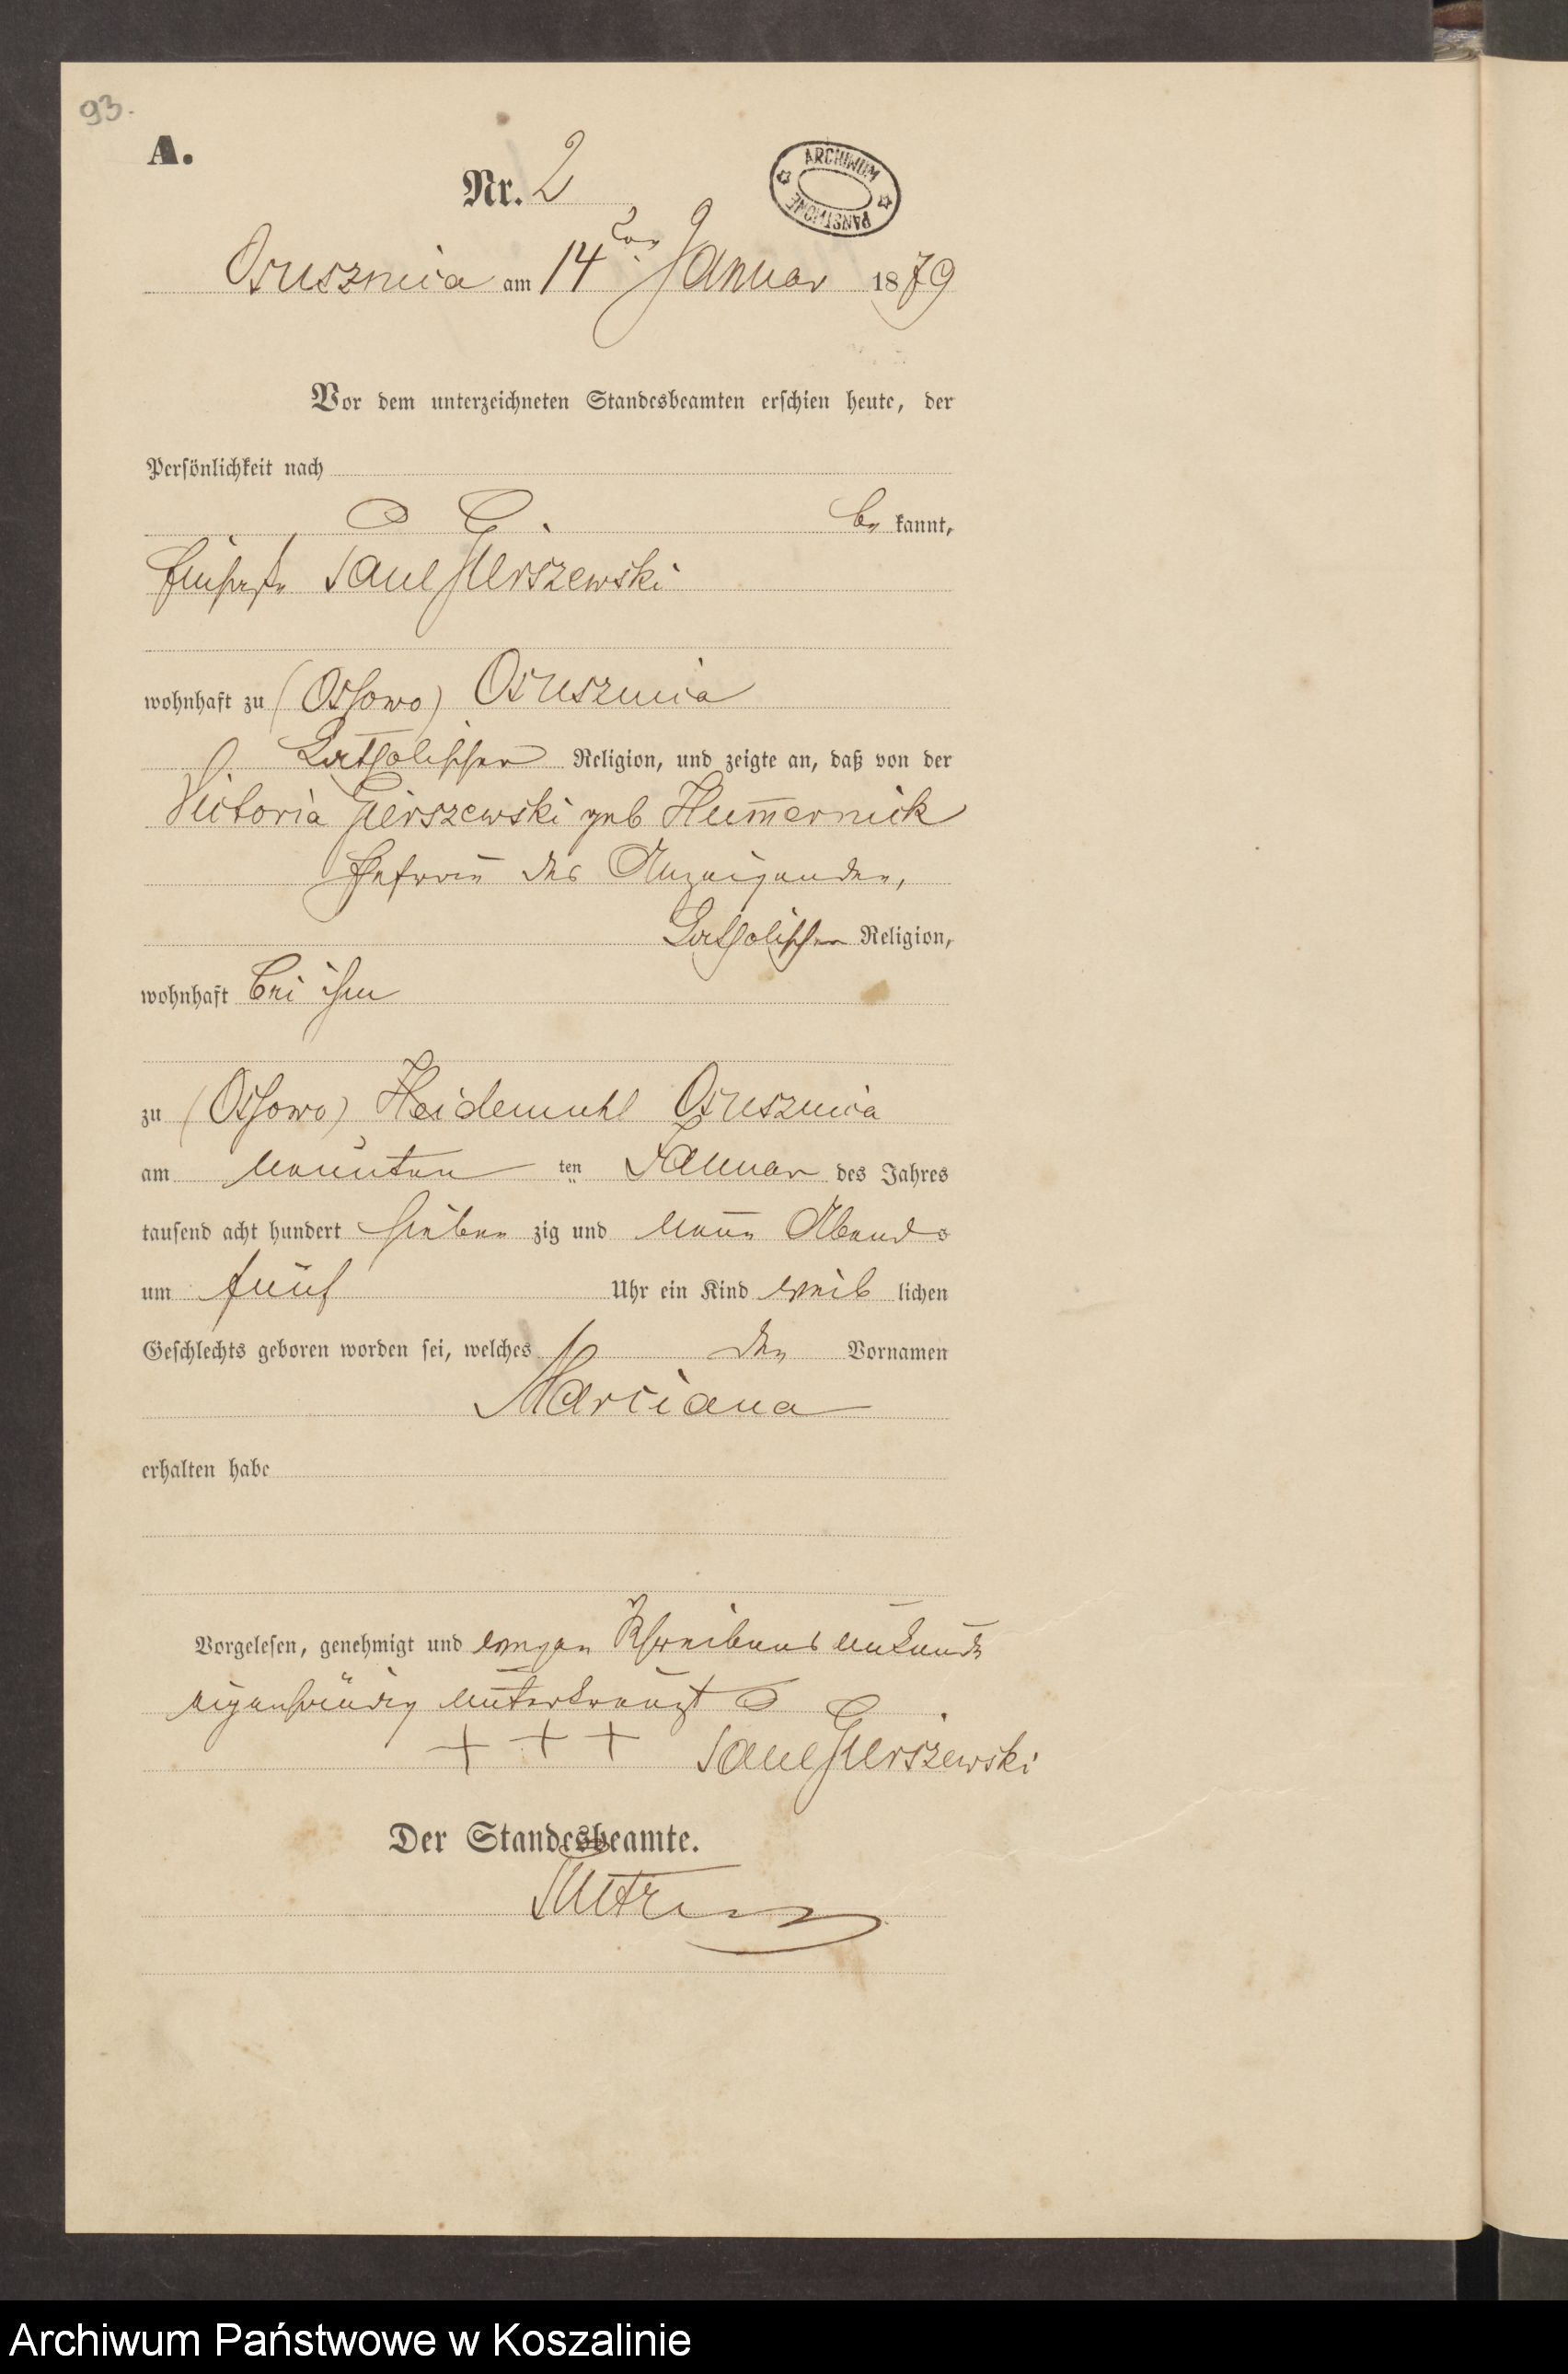 93.
A.
Nr. 2
ARCHIWUM PAŃSTWOWE
Osusznica am 14ten Januar 1879
Vor dem unterzeichneten Standesbeamten erschien heute, der
Persönlichkeit nach
be kannt,
Einsasse Paul Gierszewski
wohnhaft zu (Ossowo) Osusznica
katholischer Religion, und zeigte an, daß von der
Victoria Gierszewski geb Hum̄ernick
Ehefrau des Anzeigenden,
katholischer Religion,
wohnhaft bei ihm
zu (Ossowo) Heidemuhl Osusznica
am neunten ten Januar des Jahres
tausend acht hundert sieben zig und neun Abends
um fünf Uhr ein Kind weib lichen
Geschlechts geboren worden sei, welches den Vornamen
Marciana
erhalten habe
Vorgelesen, genehmigt und wegen Schreibens unkunde
eigenhändig unterkreuzt
+ + + Paul Gierszewski
Der Standesbeamte.
Archiwum Państwowe w Koszalinie